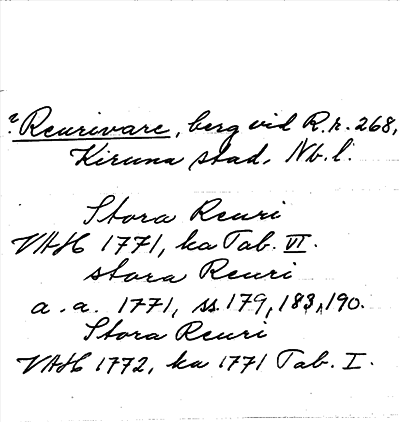 ? Reurivare, berg vid R.r. 268,
Kiruna stad. Nb. l.
Stora Reuri
VAH 1771, ka Tab. VI.
stora Reuri
a. a. 1771, ss. 179, 183, 190.
Stora Reuri
VAH 1772, ka 1771 Tab. I.